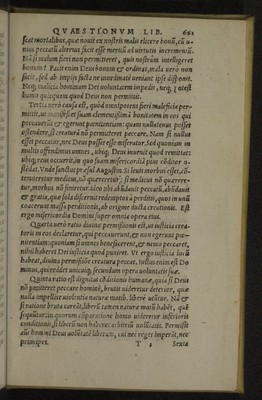 QVAESTIONVM LIB. 661
ficat mortalibus, quæ nouit ex nostris malis elicere bonū, cū
nius peccatū alterius sæpe esse meritū ad virtutis incremenū.
Nā si malum fieri non permitteret, quis nostrûm intelligeret
bonum? Facit enim Deus bonum & ordinat, mala verò non
facit, sed ab impijs facta ne inordinata ueniant ipse disponit.
Neq; malitia hominum Dei voluntatem impedit, neq; potest
homo quicquam quod Deus non permittat.
Tertia verò causa est, quòd omnipotens fieri maleficia per-
mittit, ut manifestet suam clementissimā bonitatem in eos qui
peccauerūt & egerunt pœnitentiam: quam nullatenus posset
ostendere, si creaturā nō permitteret peccare. Nam si nullus
esset peccator, nec Deus posset esse miserator. Sed quoniam in
multis offendimus omnes, ubiq; Deus inuenit quod remittat:
ubiq; reus occurrit, in quo suam misericordiā pius cōditor o-
stēdat. Vnde sanctus præsul Augustin. Si leuis morbus esset, cō-
temneretur medicus, nō quæreretur; si medicus nō quærere-
tur, morbus nō finiretur. ideo ubi abūdauit peccatū, abūdauit
& gratia, quæ sola discernit redemptos à perditis, quos in unā
concreuerat massā perditionis, ab origine ducta
ergo misericordia Domini super omnia opera eius.
Quarta verò ratio diuinæ permissionis est, ut iustitia crea-
toris in eos declaretur, qui peccauerunt, & non egerunt pœ-
nitentiam: quoniam si omnes benefacerent, & nemo peccaret,
nihil haberet Dei iustitia quod puniret. Vt ergo iustitia locū
habeat, diuina permissione creatura peccet. iustus enim est Do
minus, qui reddet unicuiq; secundum opera uoluntatis suæ.
Quinta ratio est dignitas cōditionis humanæ, quia si Deus
nō permitteret peccare hominē, brutis uideretur deterior, quæ
nulla impellere violentia naturæ motū liberè uetitur. Nā &
si ratione bruta careāt, liberū tamen naturæ motū habēt, quē
sequūtur: in quorum cōparatione homo uideretur inferioris
conditionis, si liberū non haberet arbitriū uolūtatis. Permisit
aūt homini Deus uolūtatē liberam, cui nec leges imperāt, nec
principes.
T 3 Sexta